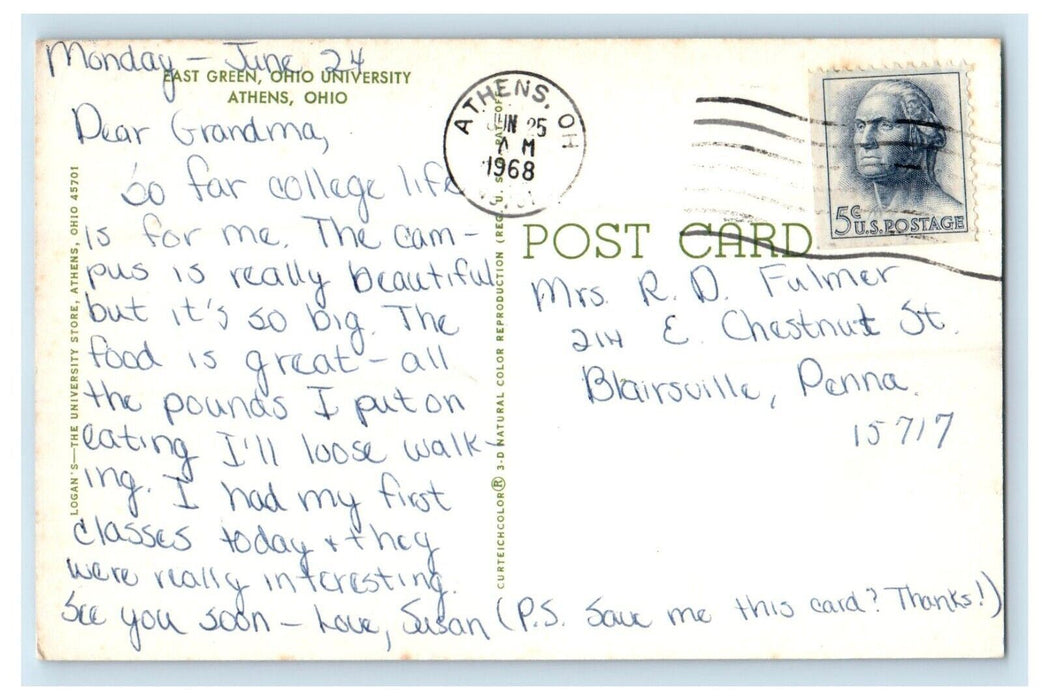 Monday - June 24
EAST GREEN, OHIO UNIVERSITY
ATHENS, OHIO
Dear Grandma,
So far college life
is for me. The cam-
pus is really beautiful
but it's so big. The
food is great - all
the pounds I put on
eating I'll loose walk-
ing. I had my first
classes today + they
were really interesting.
See you soon - Love, Susan (P.S. Save me this card? Thanks!)
LOGAN'S—THE UNIVERSITY STORE, ATHENS, OHIO 45701
CURTEICHCOLOR® 3-D NATURAL COLOR REPRODUCTION (REG. U. S.
ATHENS, OH
JUN 25
AM
1968
5¢ U.S. POSTAGE
POST CARD
Mrs. R. D. Fulmer
214 E. Chestnut St.
Blairsville, Penna.
15717